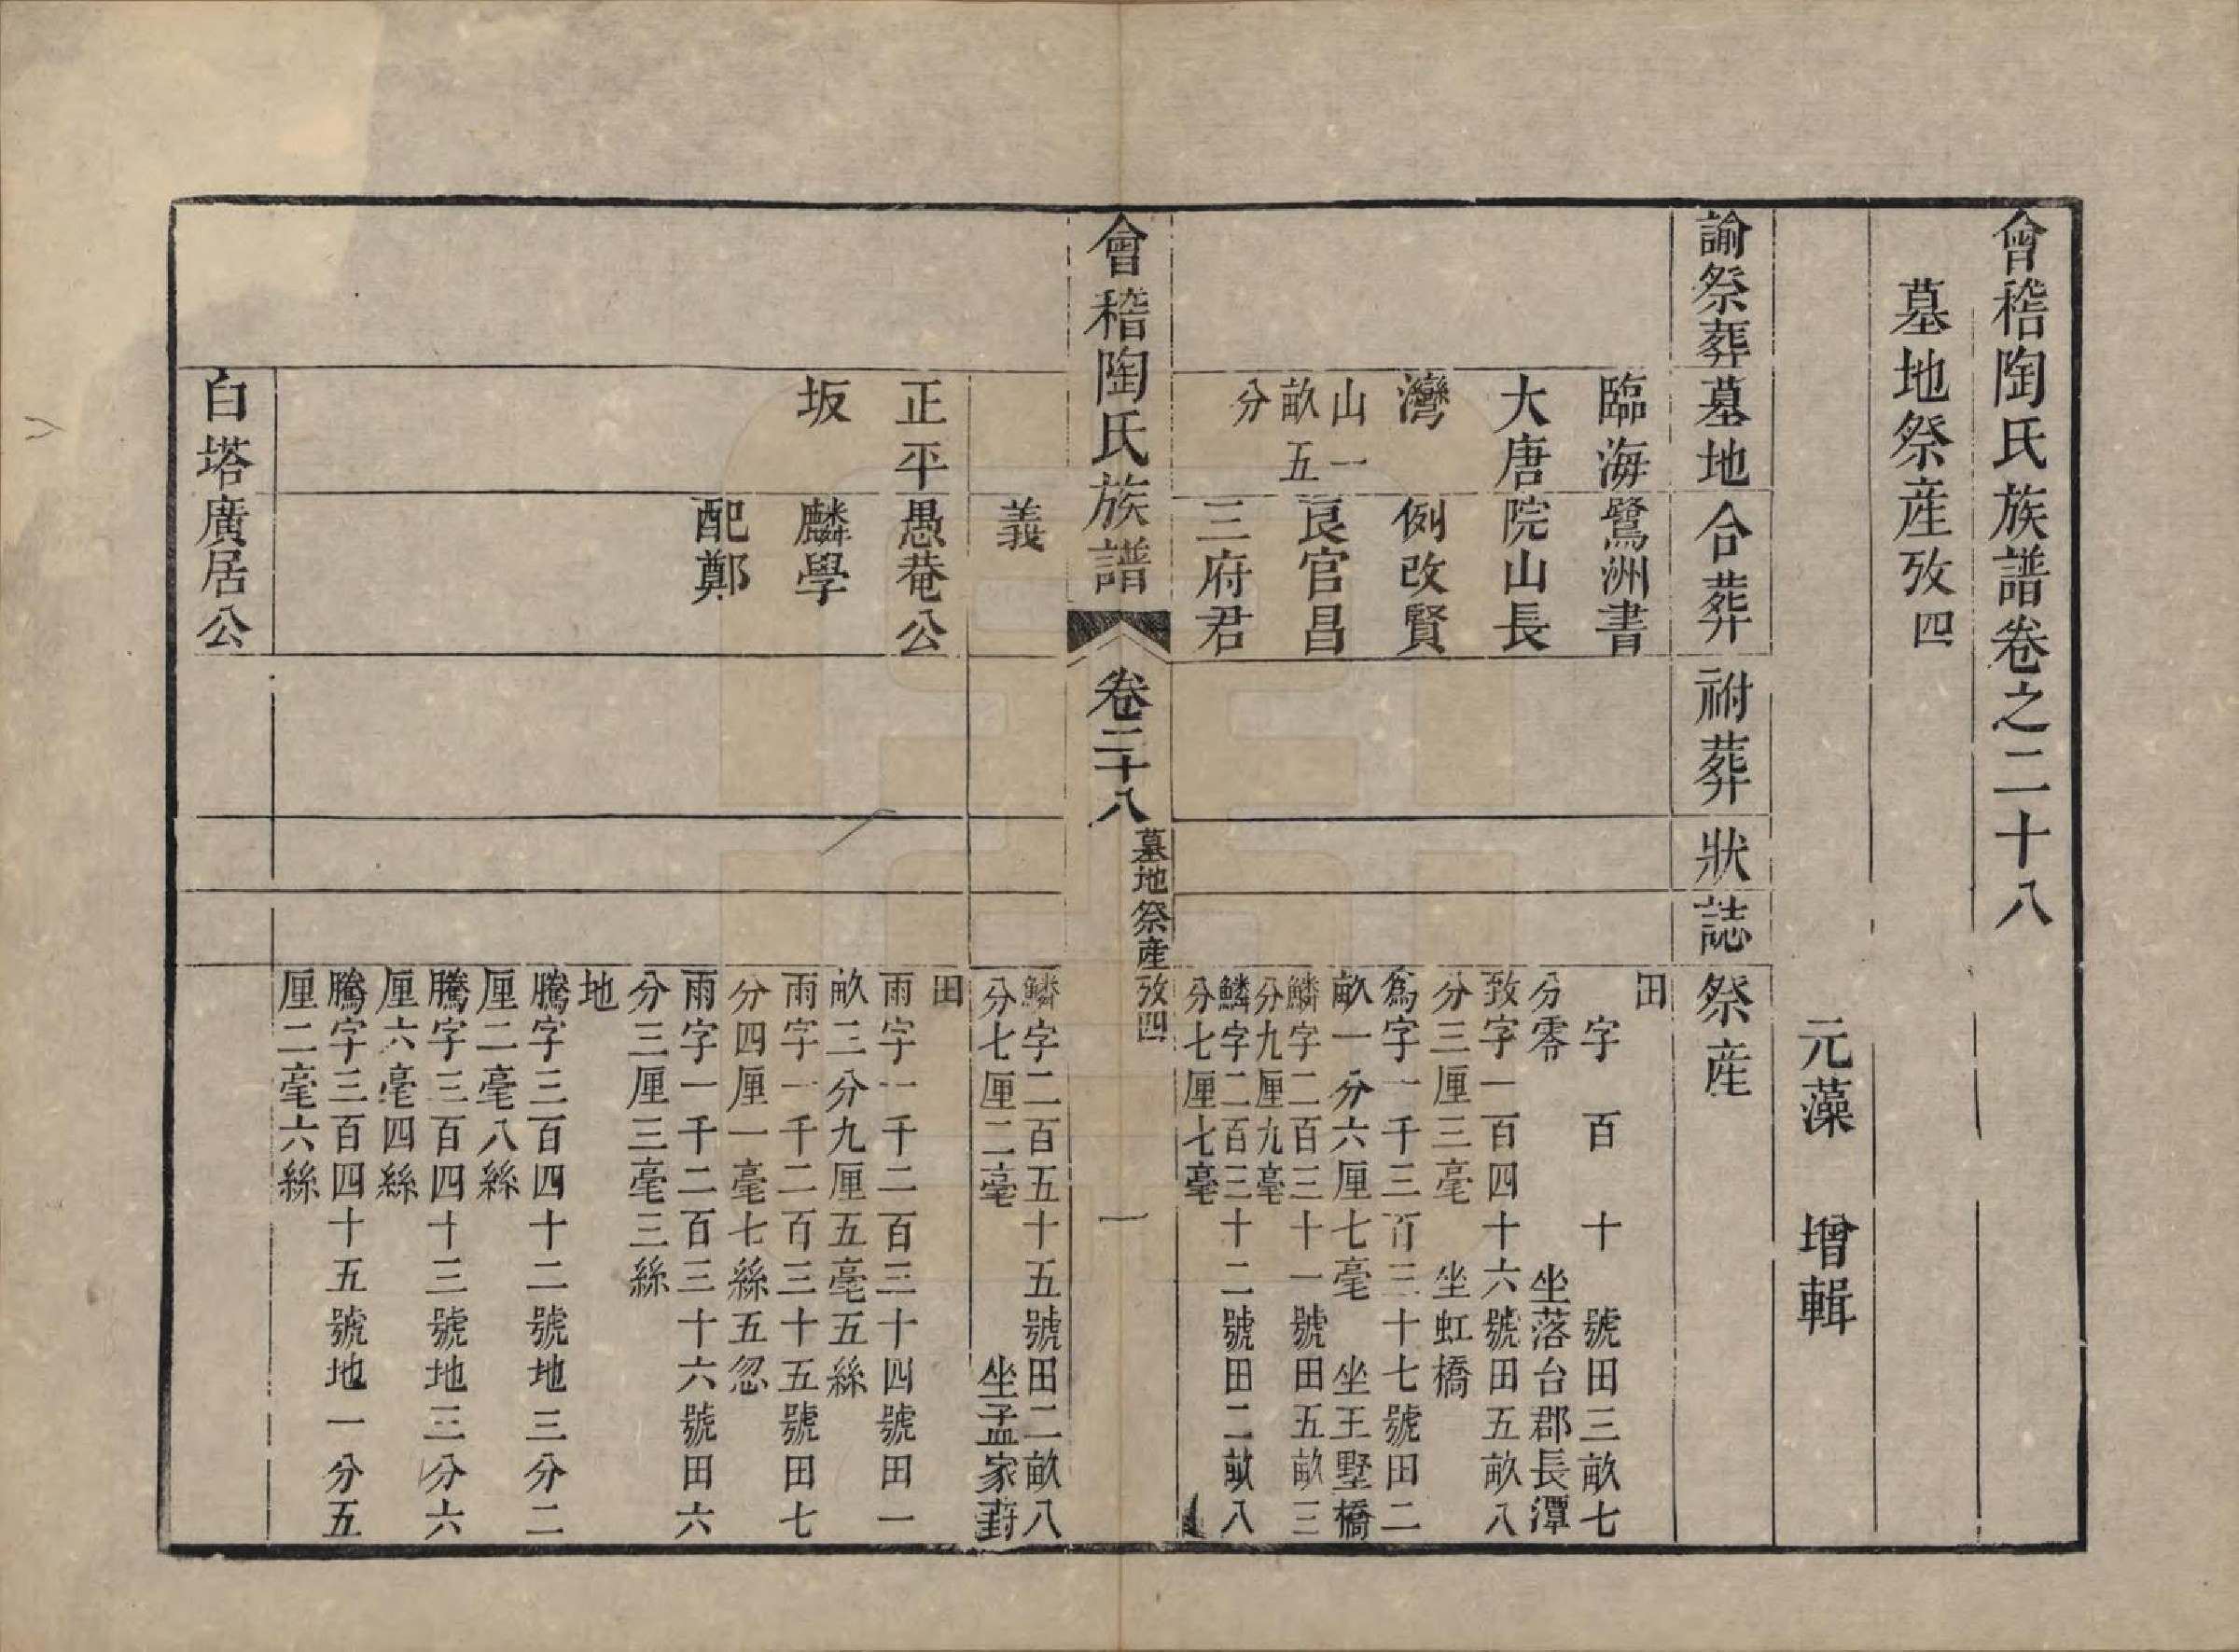 會稽陶氏族譜卷之二十八
墓地祭産攷四
元藻　增輯
諭祭葬
墓地
合葬
祔葬
狀
誌
祭産
臨海
大唐
灣
山一
畝五
分
鷺洲書
院山長
例改賢
良官昌
三府君
田
字　百　十　號田三畝七
分零　坐落台郡長潭
致字一百四十六號田五畝八
分三厘三毫　坐虹橋
爲字一千三百三十七號田二
畝一分六厘七毫　坐王墅橋
鱗字二百三十一號田五畝三
分九厘九毫
鱗字二百三十二號田二畝八
分七厘七毫
會稽陶氏族譜
卷二十八
墓地祭産攷四
一
義
鱗字二百五十五號田二畝八
分七厘二毫　坐孟家葑
正平
坂
愚菴公
麟學
配鄭
田
雨字一千二百三十四號田一
畝二分九厘五毫五絲
雨字一千二百三十五號田七
分四厘一毫七絲五忽
雨字一千二百三十六號田六
分三厘三毫三絲
地
騰字三百四十二號地三分二
厘二毫八絲
騰字三百四十三號地三分六
厘六毫四絲
騰字三百四十五號地一分五
厘二毫六絲
白塔
廣居公